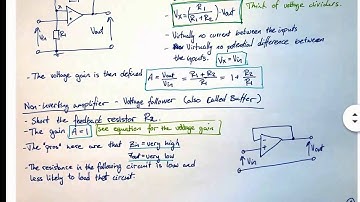 Vx = (R1 / (R1 + R2)) · Vout
Think of voltage dividers.
- Virtually no current between the inputs
- Virtually no potential difference between
the inputs. Vx = Vin
Vin
R1
Vout
- The voltage gain is then defined A = Vout / Vin = (R1 + R2) / R1 = 1 + R2 / R1
Non-Inverting amplifier - Voltage follower (also called Buffer)
- Short the feedback resistor R2.
- The gain A = 1 see equation for the voltage gain
- The "pros" were are that Zin = very high
Zout = very low
- The resistance in the following circuit is low and
less likely to load that circuit.
Vin
Vout